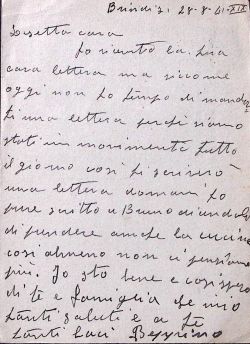 Brindisi 28-8-41-XIX
Lisetta cara
Io ricevuto la tua
cara lettera ma siccome
oggi non ho tempo di mandar
ti una lettera perche siamo
stati in movimento tutto
il giorno cosi ti scrivero
una lettera domani ho
pure scritto a Bruno
di prendere anche la cucina
cosi almeno non ci pensiamo
più. Io sto bene e cosi spero
di te e famiglia che mio
tanti saluti e a te
tanti baci Beppino